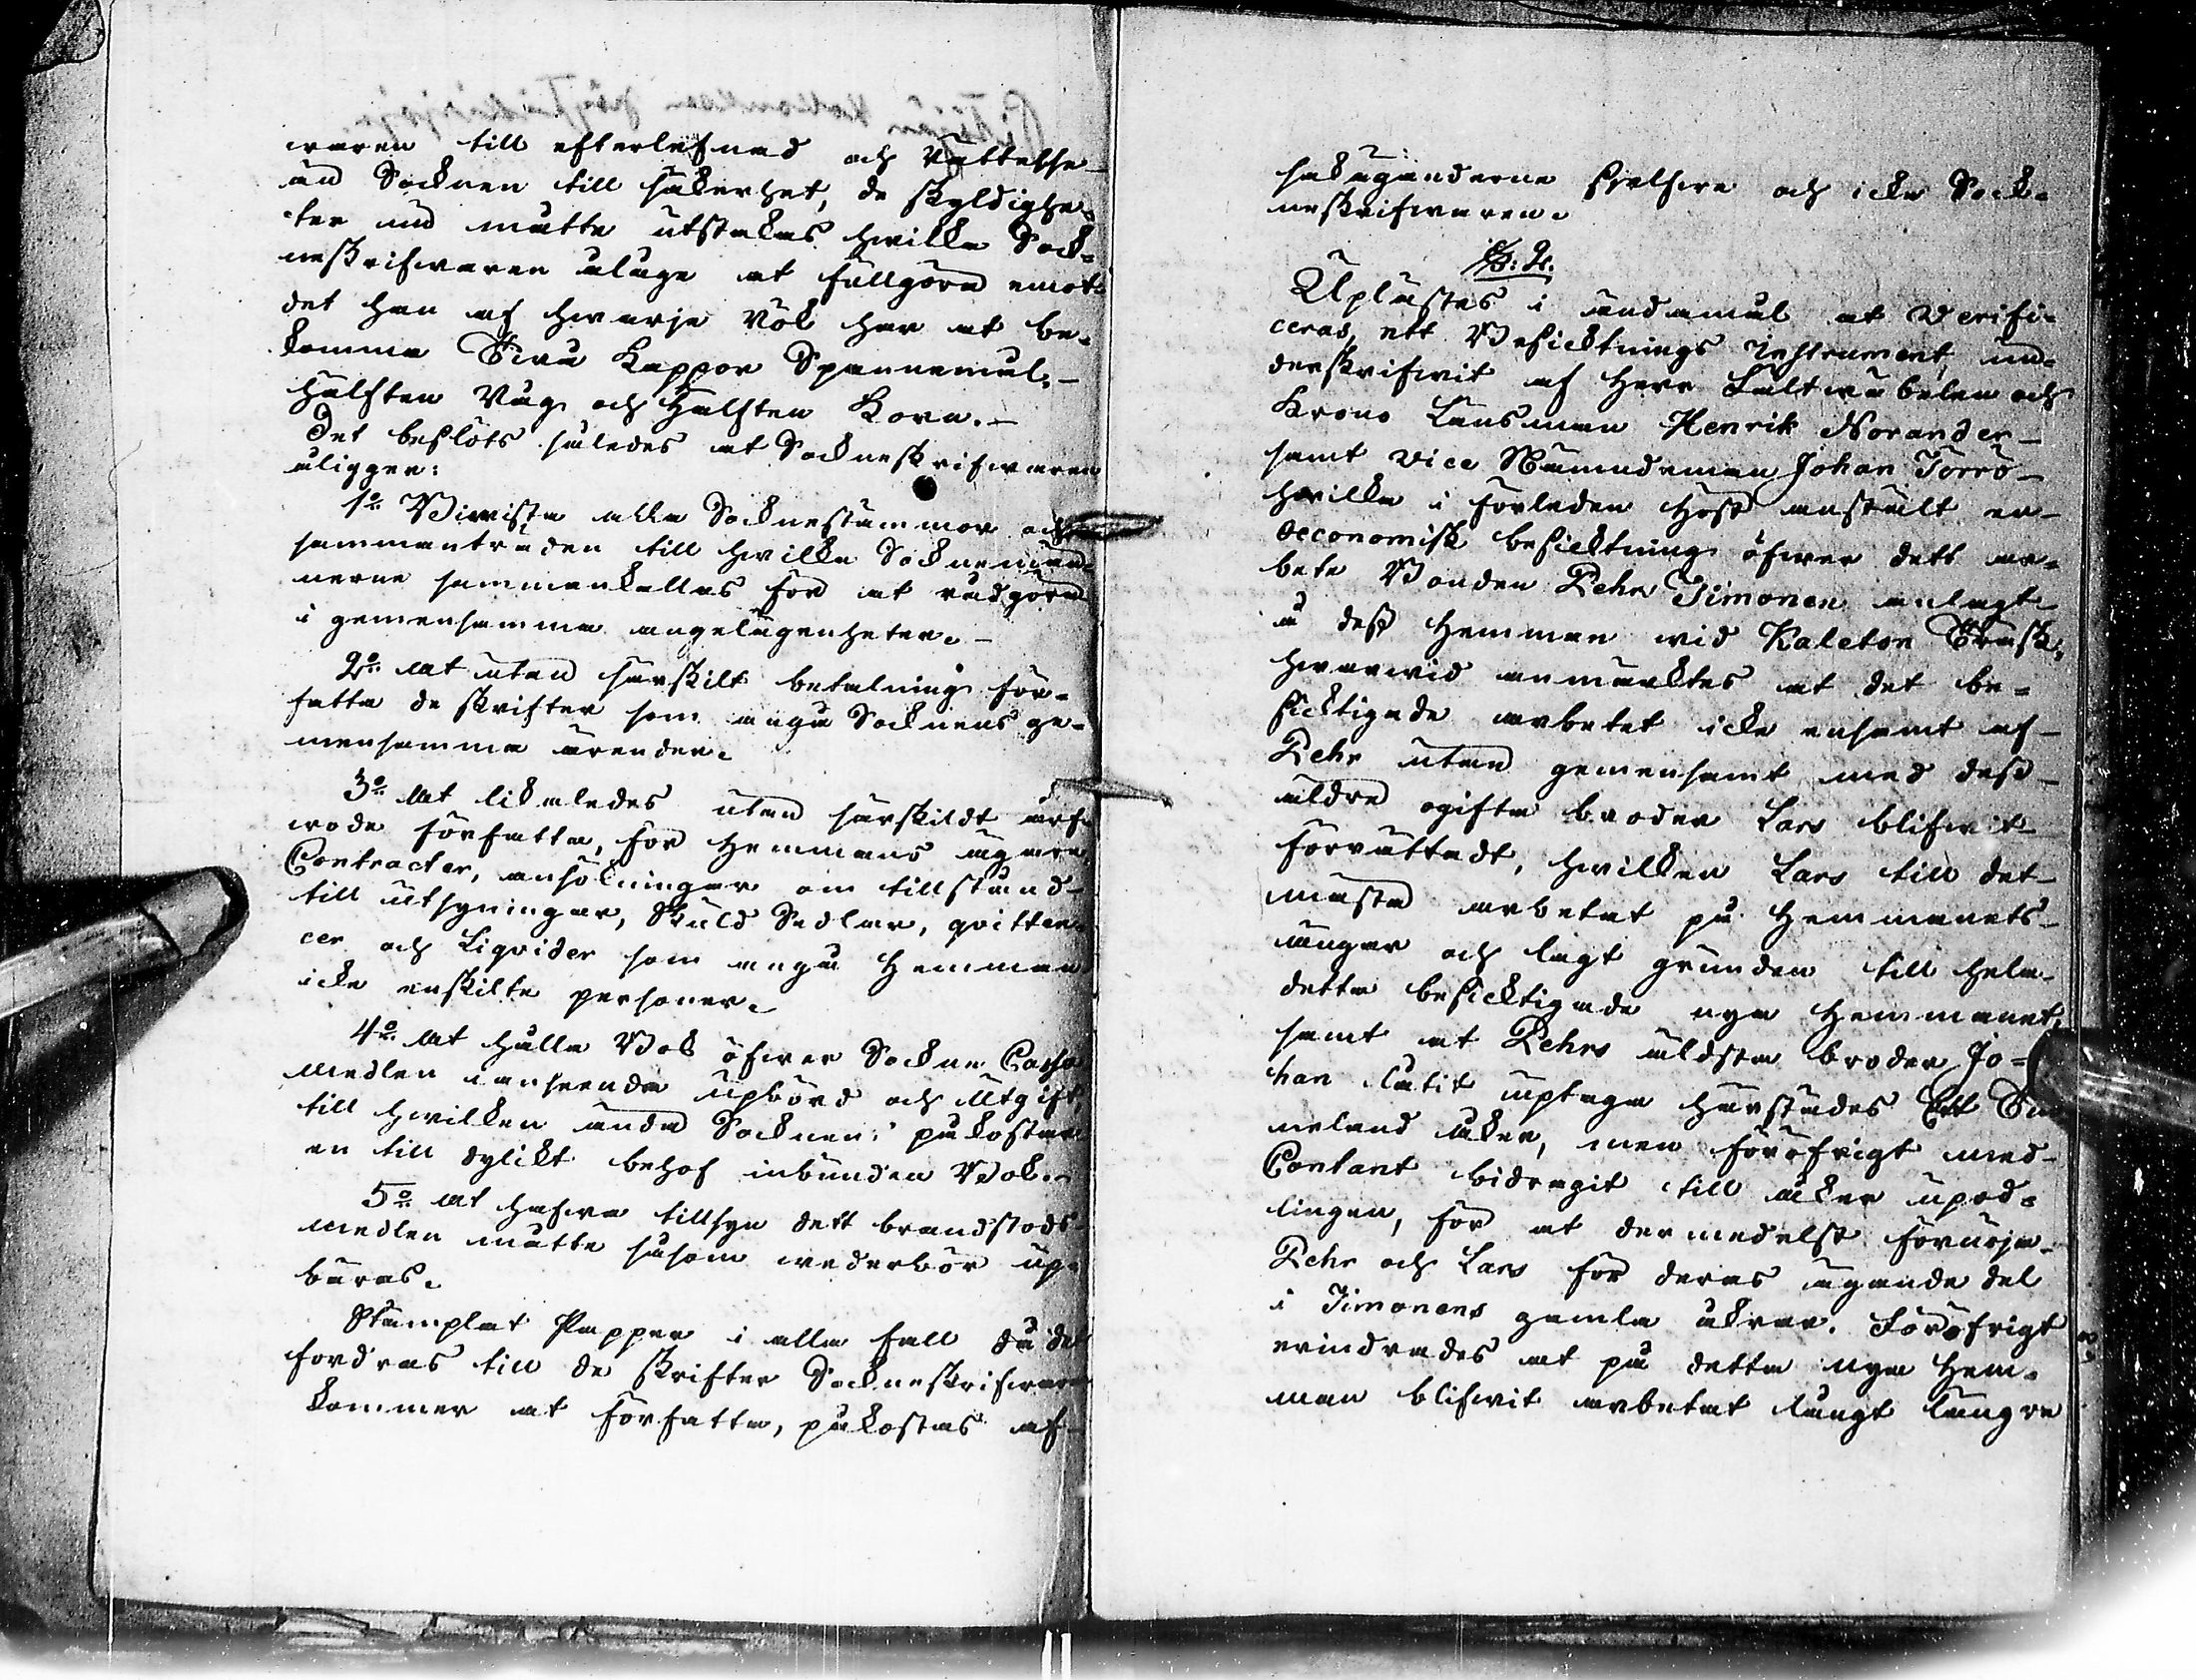 waren till efterlefnad och Rättelse
än Socknen till säkerhet, de skyldighe-
ter nu måtte utstakas hwilka Sock-
neskrifwaren åläge at fullgöra emot
det han af hwarje Rök har at be-
komma Twå Kappor Spannemål,
Hälften Råg och Hälften Korn.
Det beslöts således at Sockneskrifwaren
åligger:
1o Biwista alla Socknestämmor och
sammanträden till hwilka Sockнemän-
nerne sammankallas för at rådgöra
i gemensamma angelägenheter.
2o At utan särskilt betalning för-
fatta de skrifter som angå Socknens ge-
mensamma ärender.
3o At likaledes utan särskildt arf-
wode författa, för Hemmans ägare,
Contracter, ansökningar om tillstånd
till utsyningar, Skuld Sedlar, qvitten-
cer och Liqvider som angå Hemman
icke enskilte personer.
4o At hålla Bok öfwer Sockne Cassa
Medlen i anseende upbörd och Utgift,
till hwilken ända Socknen påkostar
en till dylikt behof inbunden Bok.
5o At hafwa tillsyn dett brandstods
Medlen måtte såsom wederbör up-
bäras.
Stämplat Papper i alla fall då det
fordras till de skrifter Sockneskrifwaren
kommer at författa, påkostas af
sakäganderne sjelfwe och icke Sock-
neskrifwaren.
§: 2.
Uplästes i ändamål at Verifi-
ceras, ett Besicktnings Instrument, un-
derskrifwit af Herr Fältwäbelen och
Krono Länsman Henrik Norander
samt Vice Nämndeman Johan Törrö
hwilka i förleden Höst anstält en
Oeconomisk besicktning öfwer dett ar-
bete Bonden Pehr Timonen anlagt
å dess Hemman wid Kaleton Träsk,
hwarwid anmärktes at det be-
sicktigade arbetet icke ensamt af
Pehr utan gemensamt med dess
äldre ogifte broder Lars blifwit
förrättadt, hwilken Lars till det
mästa arbetat på Hemmanets
ängar och lagt grunden till hela
detta besicktigade nya Hemmanet,
samt at Pehrs äldsta broder Jo-
han låtit uptaga härstädes Ett Tun-
neland åker, men föröfrigt med
Contant bidragit till åker upod-
lingen, för at dermedelst förnöja
Pehr och Lars för deras ägande del
i Timonens gamla åkrar. Föröfrigt
erindrades at på detta nya Hem-
man blifwit arbetat långt längre